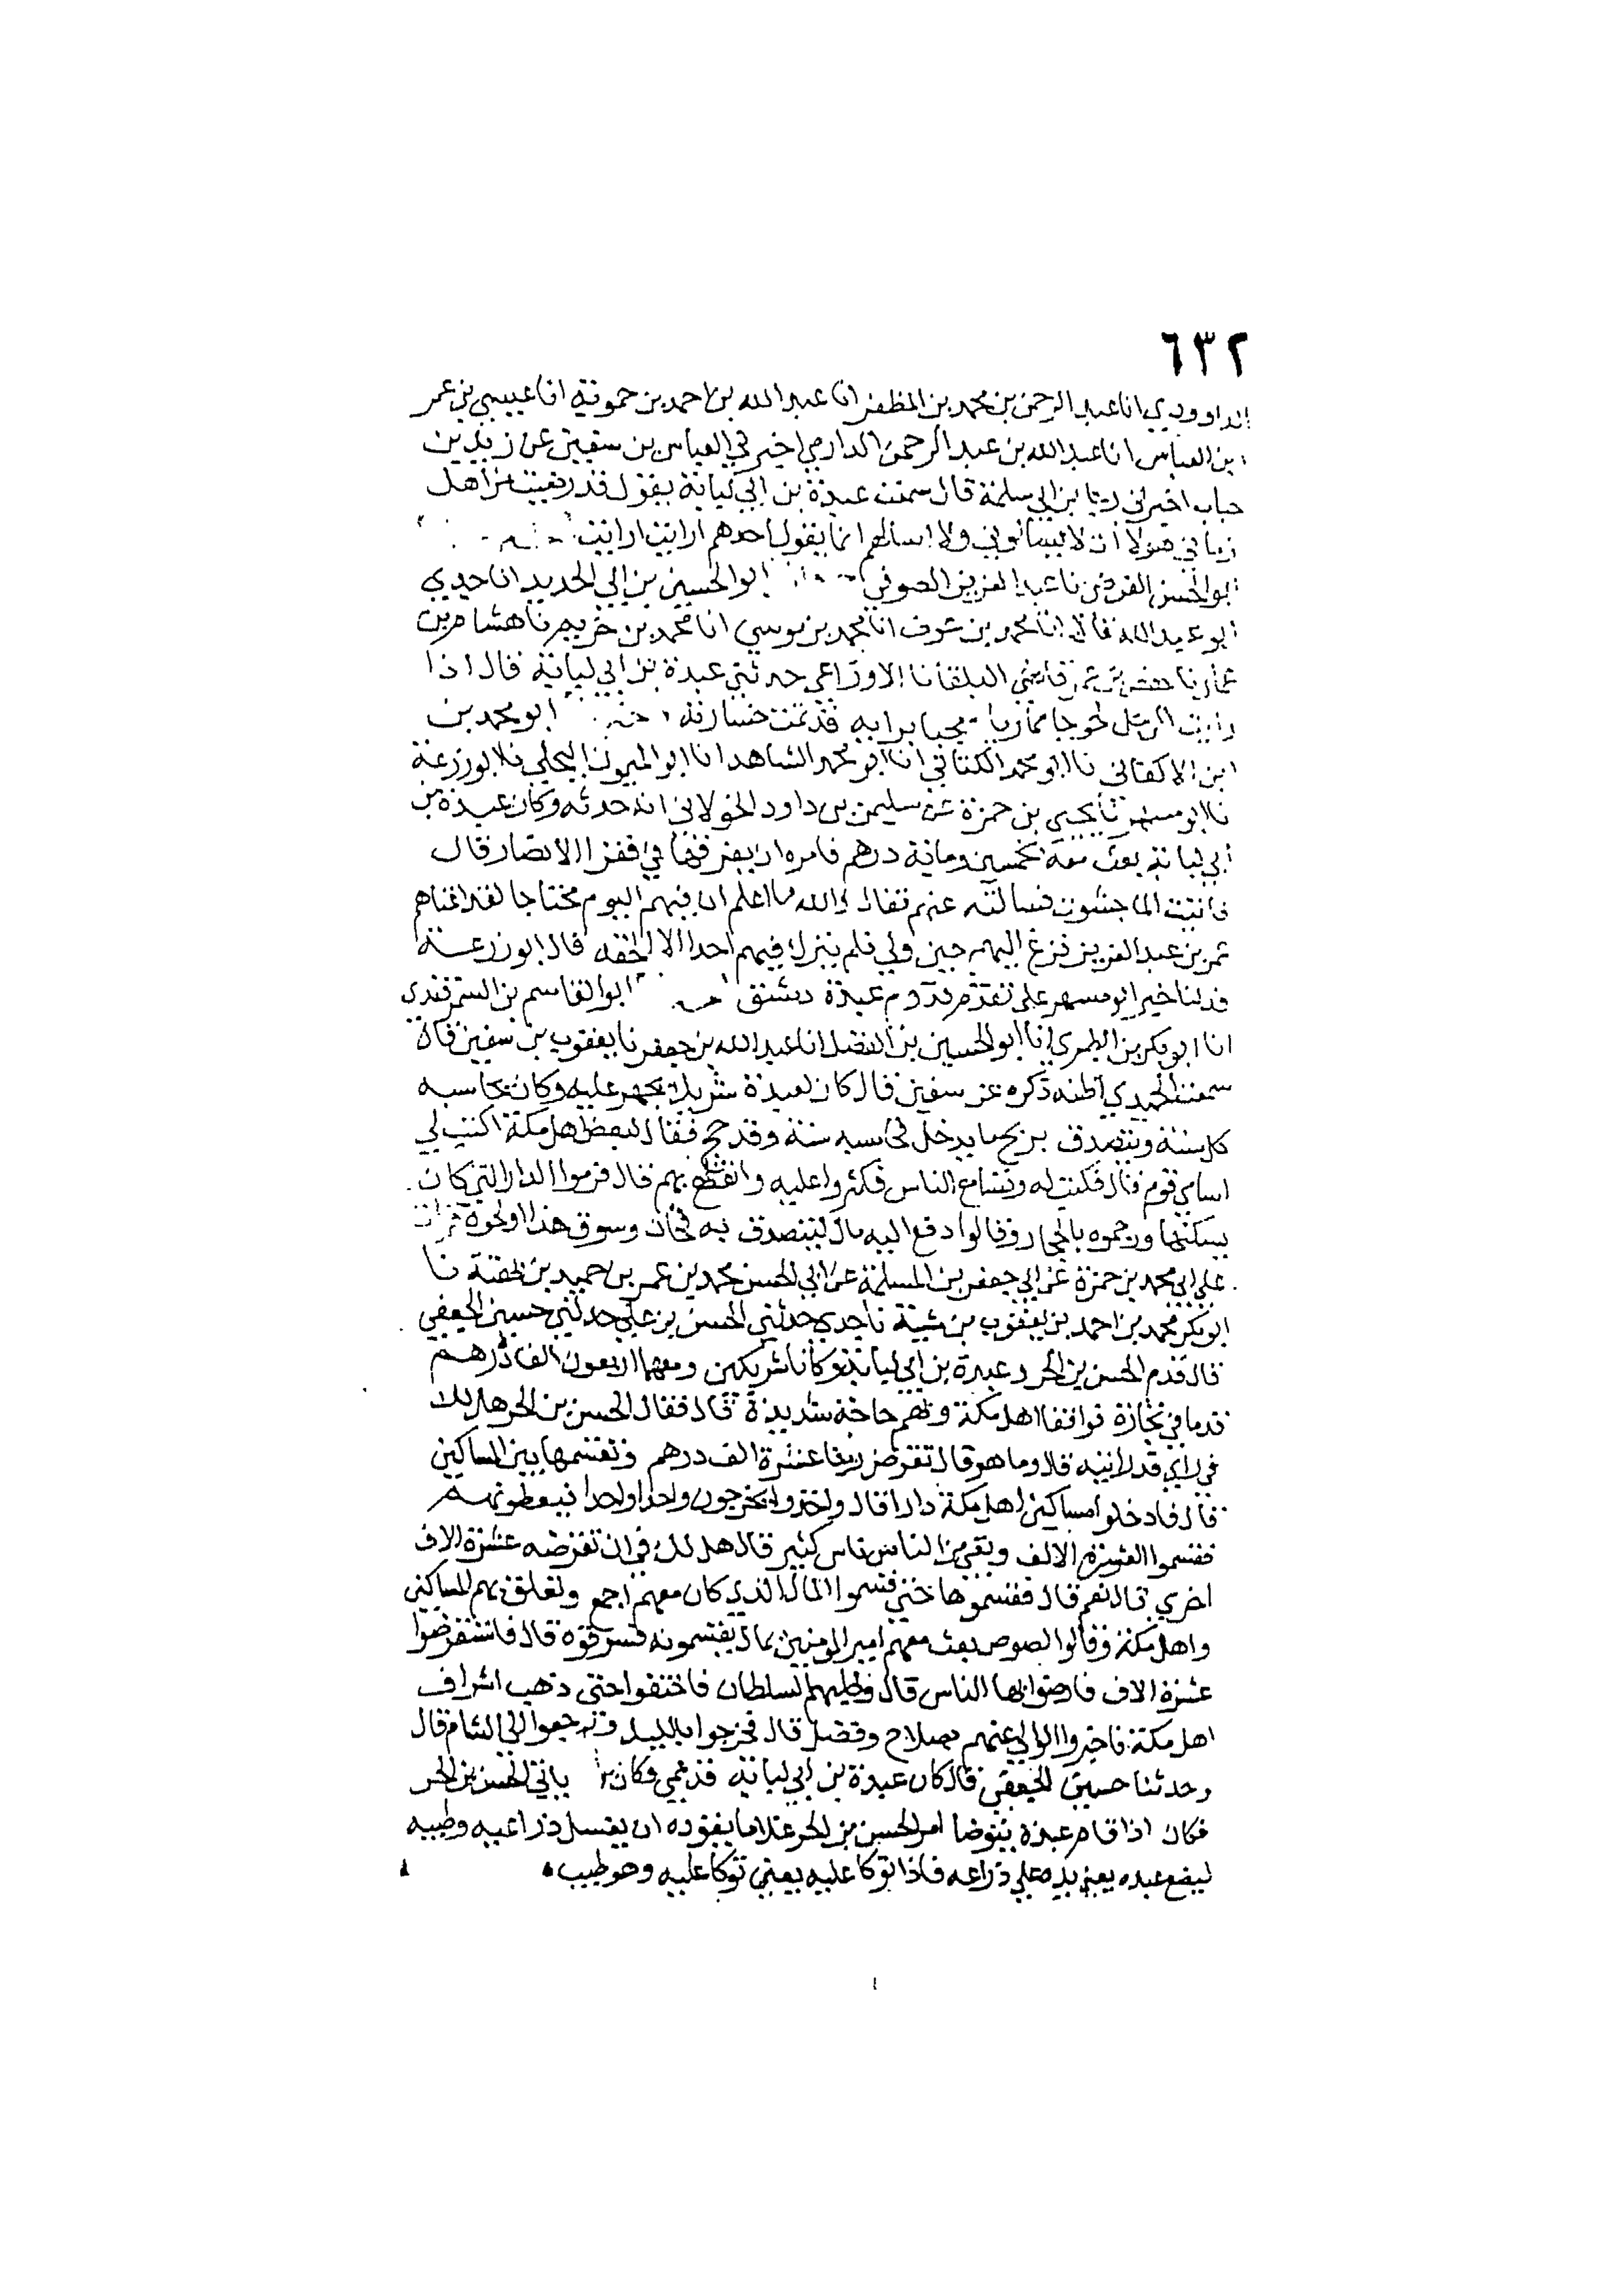 ٦٣٢
الداوودي انا عبد الرحمن بن محمد بن المظفر انا عبد الله بن احمد بن حمويه انا عيسى بن عمر
بن العباس انا عبد الله بن عبد الرحمن الدارمي اخبرني العباس بن سفين عن زيد بن
حباب اخبرني رجا بن ابي سلمة قال سمعت عبدة بن ابي لبابة يقول قد رضيت من اهل
زماني هولا ان لا يسالوني ولا اسالهم انما يقول احدهم ارايت ارايت
ابو الحسن الفرضي نا عبد العزيز الصوفي ابو الحسين بن ابي الحديد انا جدي
ابو عبد الله قالا انا محمد بن عوف انا محمد بن موسى انا محمد بن خريم نا هشام بن
عمار نا الاوزاعي حدثني عبدة بن ابي لبابة قال اذا
رايت الرجل لجوجا مماريا معجبا برايه فقد تمت خسارته ابو محمد بن
ابن الاكفاني نا ابو محمد الكتاني انا ابو محمد الشاهد انا ابو الميمون البجلي نا ابو زرعة
نا ابو مسهر نا يحيى بن حمزة عن سليمن بن داود الخولاني انه حدثه وكان عبدة بن
ابي لبابة بعث معه بخمسين ومائة درهم فامره ان يفرقها في فقرا الانصار قال
فاتيت الماجشون فسالته عنهم فقال والله ما اعلم ان فيهم اليوم محتاجا لقد اغناهم
عمر بن عبد العزيز فزع اليهم حين ولي فلم يترك فيهم احدا الا الحقه قال ابو زرعة
فدلنا خبر ابو مسهر على تقدم قدوم عبدة دمشق ابو القاسم بن السمرقندي
انا ابو بكر بن الطبري انا ابو الحسين بن الفضل انا عبد الله بن جعفر نا يعقوب بن سفين قال
سمعت الحميدي اظنه ذكره عن سفين قال كان لعبدة شريك يجهز عليه وكان يحاسبه
كل سنة ويتصدق بربح ما يدخل في سنة وقد حج فقال لبعض اهل مكة اكتب لي
اسامي قوم قال فكتبت له وتسامع الناس فكثروا عليه وانقطع بهم قال فرموا الدار التي كان
يسكنها ورجموه بالحجارة وقالوا دفع اليه مال ليتصدق به فخان وسرق هذا او نحوه قرات
على ابي محمد بن حمزة عن ابي جعفر بن المسلمة عن ابي الحسن محمد بن عمر بن حميد بن بهتة نا
ابو بكر محمد بن احمد بن يعقوب بن شيبة نا جدي حدثني الحسن بن علي حدثني حسين الجعفي
قال قدم الحسن بن الحر وعبدة بن ابي لبابة وكانا شريكين ومعهما اربعون الف درهم
قدما في تجارة فوافقا اهل مكة وبهم حاجة شديدة قال فقال الحسن بن الحر هل لك
في راي قد رايته قال وما هو قال تقرض ربنا عشرة الف درهم وتقسمها بين المساكين
قال فادخلوا مساكين اهل مكة دارا قال واخذوا يخرجون واحدا واحدا فيعطونهم
فقسموا العشرة الالف وبقي من الناس ناس كثير قال هل لك في ان تقرضه عشرة الاف
اخرى قال نعم قال فقسموها حتى قسموا المال الذي كان معهم اجمع وتعلق بهم المساكين
واهل مكة وقالوا لصوص بعث معهم امير المومنين بمال يقسمونه فسرقوه قال فاستقرضوا
عشرة الاف فارضوا بها الناس قال وطلبهم السلطان فاختفوا حتى ذهب اشراف
اهل مكة فاخبروا الوالي عنهم بصلاح وفضل قال فخرجوا بالليل ورجعوا الى الشام قال
وحدثنا حسين الجعفي قال كان عبدة بن ابي لبابة قد عمي فكان ياتي الحسن بن الحر
فكان اذا قام عبدة يتوضا امر الحسن بن الحر غلاما يقوده ان يغسل ذراعيه وطيبه
ليضع عبده يعني يده على ذراعه فاذا توكا عليه يعني توكا عليه وهو طيب